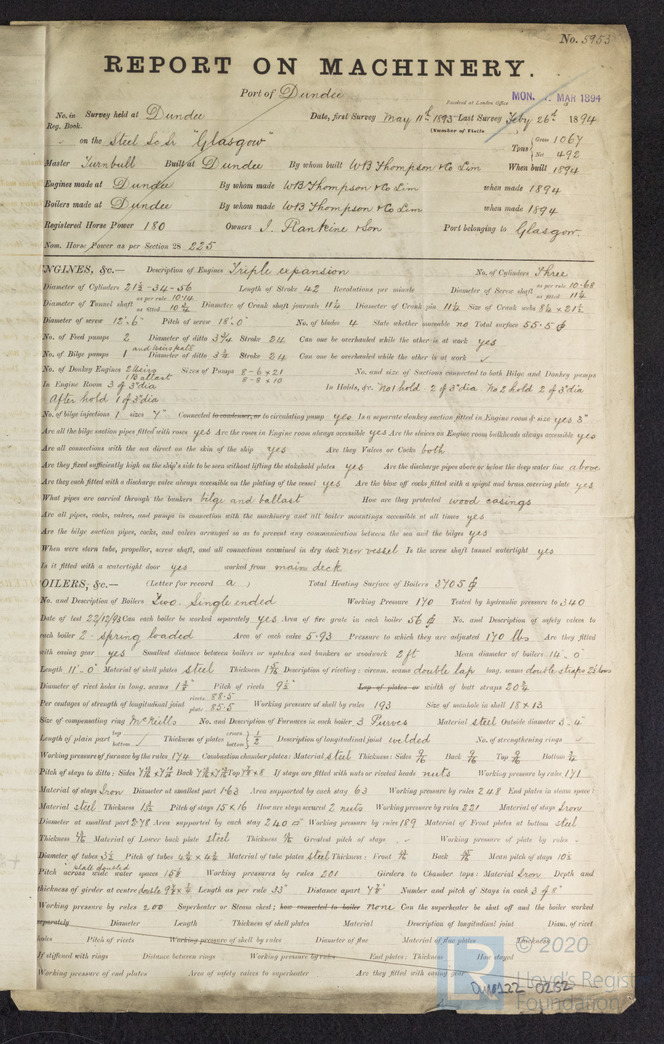 No. 5953
REPORT ON MACHINERY.
Port of Dundee
Received at London Office MON. MAR 1894
No. in Survey held at Dundee Date, first Survey May 11th 1893 Last Survey Feby 26th 1894
Reg. Book. (Number of Visits
on the Steel Sc Sr "Glasgow" Tons { Gross 1067 Net 492
Master Turnbull Built at Dundee By whom built WB Thompson & Co Lim When built 1894
Engines made at Dundee By whom made WB Thompson & Co Lim when made 1894
Boilers made at Dundee By whom made WB Thompson & Co Lim when made 1894
Registered Horse Power 180 Owners J. Rankine & Son Port belonging to Glasgow
Nom. Horse Power as per Section 28 225
ENGINES, &c.— Description of Engines Triple expansion No. of Cylinders Three
Diameter of Cylinders 21½-34-56 Length of Stroke 42 Revolutions per minute Diameter of Screw shaft as per rule 10.68 as fitted 11¼
Diameter of Tunnel shaft as per rule 10.14 as fitted 10¾ Diameter of Crank shaft journals 11¼ Diameter of Crank pin 11¼ Size of Crank webs 8¼ x 21½
Diameter of screw 12'.6" Pitch of screw 18'.0" No. of blades 4 State whether moveable no Total surface 55.5
No. of Feed pumps 2 Diameter of ditto 3¼ Stroke 24 Can one be overhauled while the other is at work yes
No. of Bilge pumps 1 Diameter of ditto 3¼ Stroke 24 Can one be overhauled while the other is at work
No. of Donkey Engines 2 Sizes of Pumps 8-6 x 21 No. and size of Suctions connected to both Bilge and Donkey pumps
1 Ballast 8-8 x 10
In Engine Room 3 of 3" dia In Holds, &c. No 1 hold. 2 of 3" dia No 2 hold 2 of 3" dia
After hold 1 of 3" dia
No. of bilge injections 1 sizes 7" Connected to condenser, or to circulating pump yes Is a separate donkey suction fitted in Engine room & size yes 3"
Are all the bilge suction pipes fitted with roses yes Are the roses in Engine room always accessible yes Are the sluices on Engine room bulkheads always accessible yes
Are all connections with the sea direct on the skin of the ship yes Are they Valves or Cocks both
Are they fixed sufficiently high on the ship's side to be seen without lifting the stokehold plates yes Are the discharge pipes above or below the deep water line above
Are they each fitted with a discharge valve always accessible on the plating of the vessel yes Are the blow off cocks fitted with a spigot and brass covering plate yes
What pipes are carried through the bunkers bilge and ballast How are they protected wood casings
Are all pipes, cocks, valves, and pumps in connection with the machinery and all boiler mountings accessible at all times yes
Are the bilge suction pipes, cocks, and valves arranged so as to prevent any communication between the sea and the bilges yes
When were stern tube, propeller, screw shaft, and all connections examined in dry dock new vessel Is the screw shaft tunnel watertight yes
Is it fitted with a watertight door yes worked from main deck
OILERS, &c.— (Letter for record a ) Total Heating Surface of Boilers 3705
No. and Description of Boilers Two. Single ended Working Pressure 170 Tested by hydraulic pressure to 340
Date of test 22/12/93 Can each boiler be worked separately yes Area of fire grate in each boiler 56 No. and Description of safety valves to
each boiler 2. spring loaded Area of each valve 5.93 Pressure to which they are adjusted 170 lbs Are they fitted
with easing gear yes Smallest distance between boilers or uptakes and bunkers or woodwork 2 ft Mean diameter of boilers 14'.0"
Length 11'.0" Material of shell plates steel Thickness Description of riveting: circum. seams double lap long. seams double straps
Diameter of rivet holes in long. seams Pitch of rivets 9½ Lap of plates or width of butt straps 20¾
Per centages of strength of longitudinal joint rivets 88.5 plate 85.5 Working pressure of shell by rules 193 Size of manhole in shell 18 x 13
Size of compensating ring McNeills No. and Description of Furnaces in each boiler 3 Purves Material steel Outside diameter 3'.4"
Length of plain part top bottom Thickness of plates crown bottom ½ Description of longitudinal joint welded No. of strengthening rings
Working pressure of furnace by the rules 174 Combustion chamber plates: Material steel Thickness: Sides 9/16 Back 9/16 Top 9/16 Bottom ¾
Pitch of stays to ditto: Sides Back Top If stays are fitted with nuts or riveted heads nuts Working pressure by rules 171
Material of stays Iron Diameter at smallest part 1.63 Area supported by each stay 63 Working pressure by rules 248 End plates in steam space:
Material steel Thickness Pitch of stays 15 x 16 How are stays secured 2 nuts Working pressure by rules 221 Material of stays Iron
Diameter at smallest part 2.78 Area supported by each stay 240 Working pressure by rules 189 Material of Front plates at bottom steel
Thickness Material of Lower back plate steel Thickness Greatest pitch of stays Working pressure of plate by rules
Diameter of tubes 3¼ Pitch of tubes 4½ x 4½ Material of tube plates steel Thickness: Front Back Mean pitch of stays
Pitch across wide water spaces Working pressures by rules 201 Girders to Chamber tops: Material Iron Depth and
thickness of girder at centre double Length as per rule 33" Distance apart Number and pitch of Stays in each 3 of 8"
Working pressure by rules 200 Superheater or Steam chest; how connected to boiler None Can the superheater be shut off and the boiler worked
separately Diameter Length Thickness of shell plates Material Description of longitudinal joint Diam. of rivet
holes Pitch of rivets Working pressure of shell by rules Diameter of flue Material of flue plates Thickness
If stiffened with rings Distance between rings Working pressure by rules End plates: Thickness How stayed
Working pressure of end plates Area of safety valves to superheater Are they fitted with easing gear
© 2020
Lloyd's Regist
Foundation
Dun122 0252